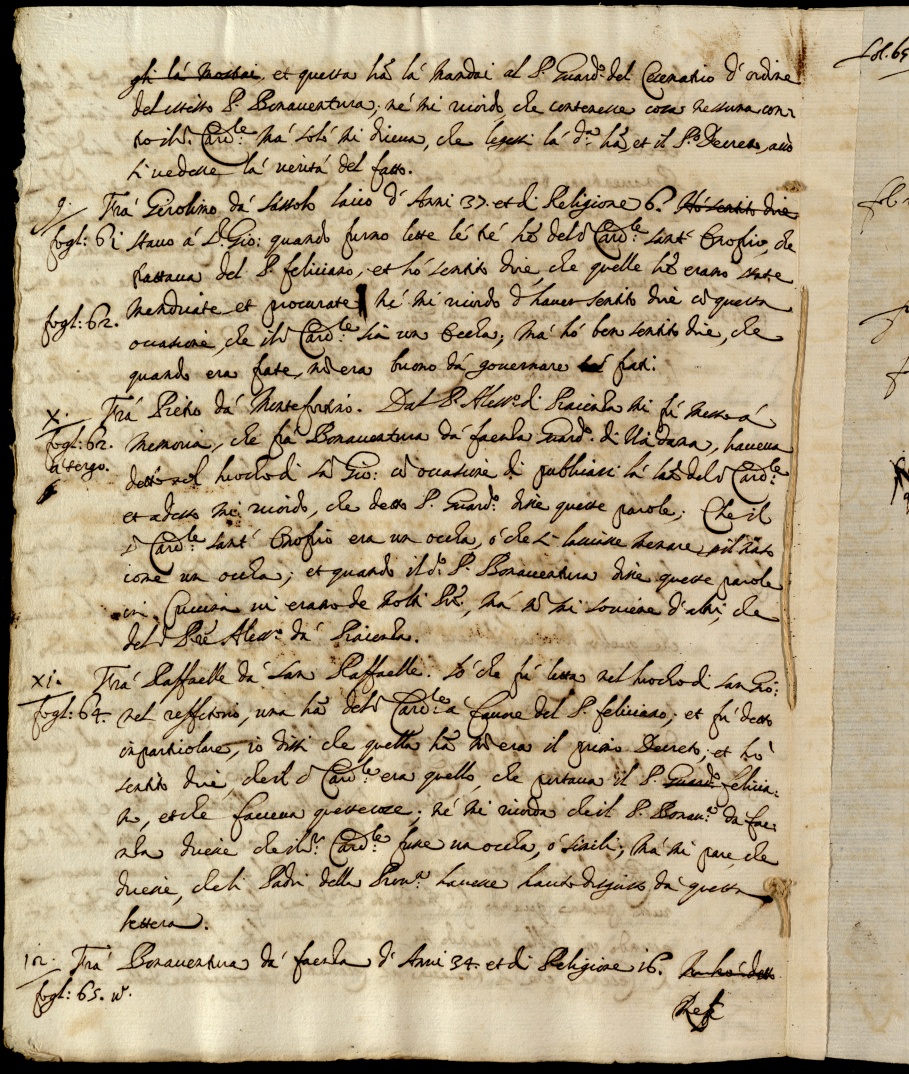 gli la mostrai, et questa lrã la mandai al P. Guard.º del Cesenatio d'ordine
dell'istesso P. Bonaventura; né mi ricordo, che contenesse cosa nessuna con-
tro il d.º Card.le má solo mi diceva, che leggessi la d.ª lrã, et il P.º Decreto, acciò
si vedesse la verità del fatto.
9. Frá Girolimo dá Sassolo laico d'Anni 37. et di Religione 6. Hò sentito dire
fogl: 61 stavo á S. Gio: quando furno lette le tré lrẽ del d.º Card.le Sant' Onofrio, che
trattava del P. feliciano, et hó sentito dire, che quelle lrẽ erano state
fogl: 62. mendicate et procurate né mi ricordo d'haver sentito dire cõ questa
occasione, che il d.º Card.le sia un Occha; má hó ben sentito dire, che
quando era frate, nõ era buono dá governare frati.
X. Frá Pietro dá Montefortino. Dal P. Aless.º di Piacenza mi fú messo á
fogl: 62. a tergo. memoria, che frá Bonaventura dá faenza Guard.º di Viadana, haveva
detto nel luocho di Sã Gio: cõ occasione di pubblicar la lrã del d.º Card.le
et adesso mi ricordo, che detto P. Guard.º disse queste parole; Che il
d.º Card.le Sant' Onofrio era un occha, ó che si lasciasse menare p il naso
come un occha; et quando il d.º P. Bonaventura disse queste parole
in Cucina vi erano de molti Prĩ, má nõ mi soviene d'altri, che
del d.º Prẽ Aless.º dá Piacenza.
xi. Frá Raffaelle dá San Raffaelle. Só che fú letta nel luocho di San Gio:
fogl: 64. nel reffetorio, una lrã del d.º Card.le á favore del P. feliciano; et fú detto
in particolare, io dissi che quella lrã nõ era il primo Decreto; et hó
sentito dire, che il d.º Card.le era quello, che portava il P. Guard.º felicia-
no, et che faceva queste cose; né mi ricorda che il P. Bonav.ª da fae-
nza dicesse che il d.º Card.le fusse un occha, ó simili; má mi pare, che
dicesse, che li Padri della Prov.ª havesse havuto disgusto dá questa
lettera.
12. Frá Bonaventura dá faenza d'Anni 34. et di Religione 16. Non hó detto
fogl: 65.
Resp
fol. 65